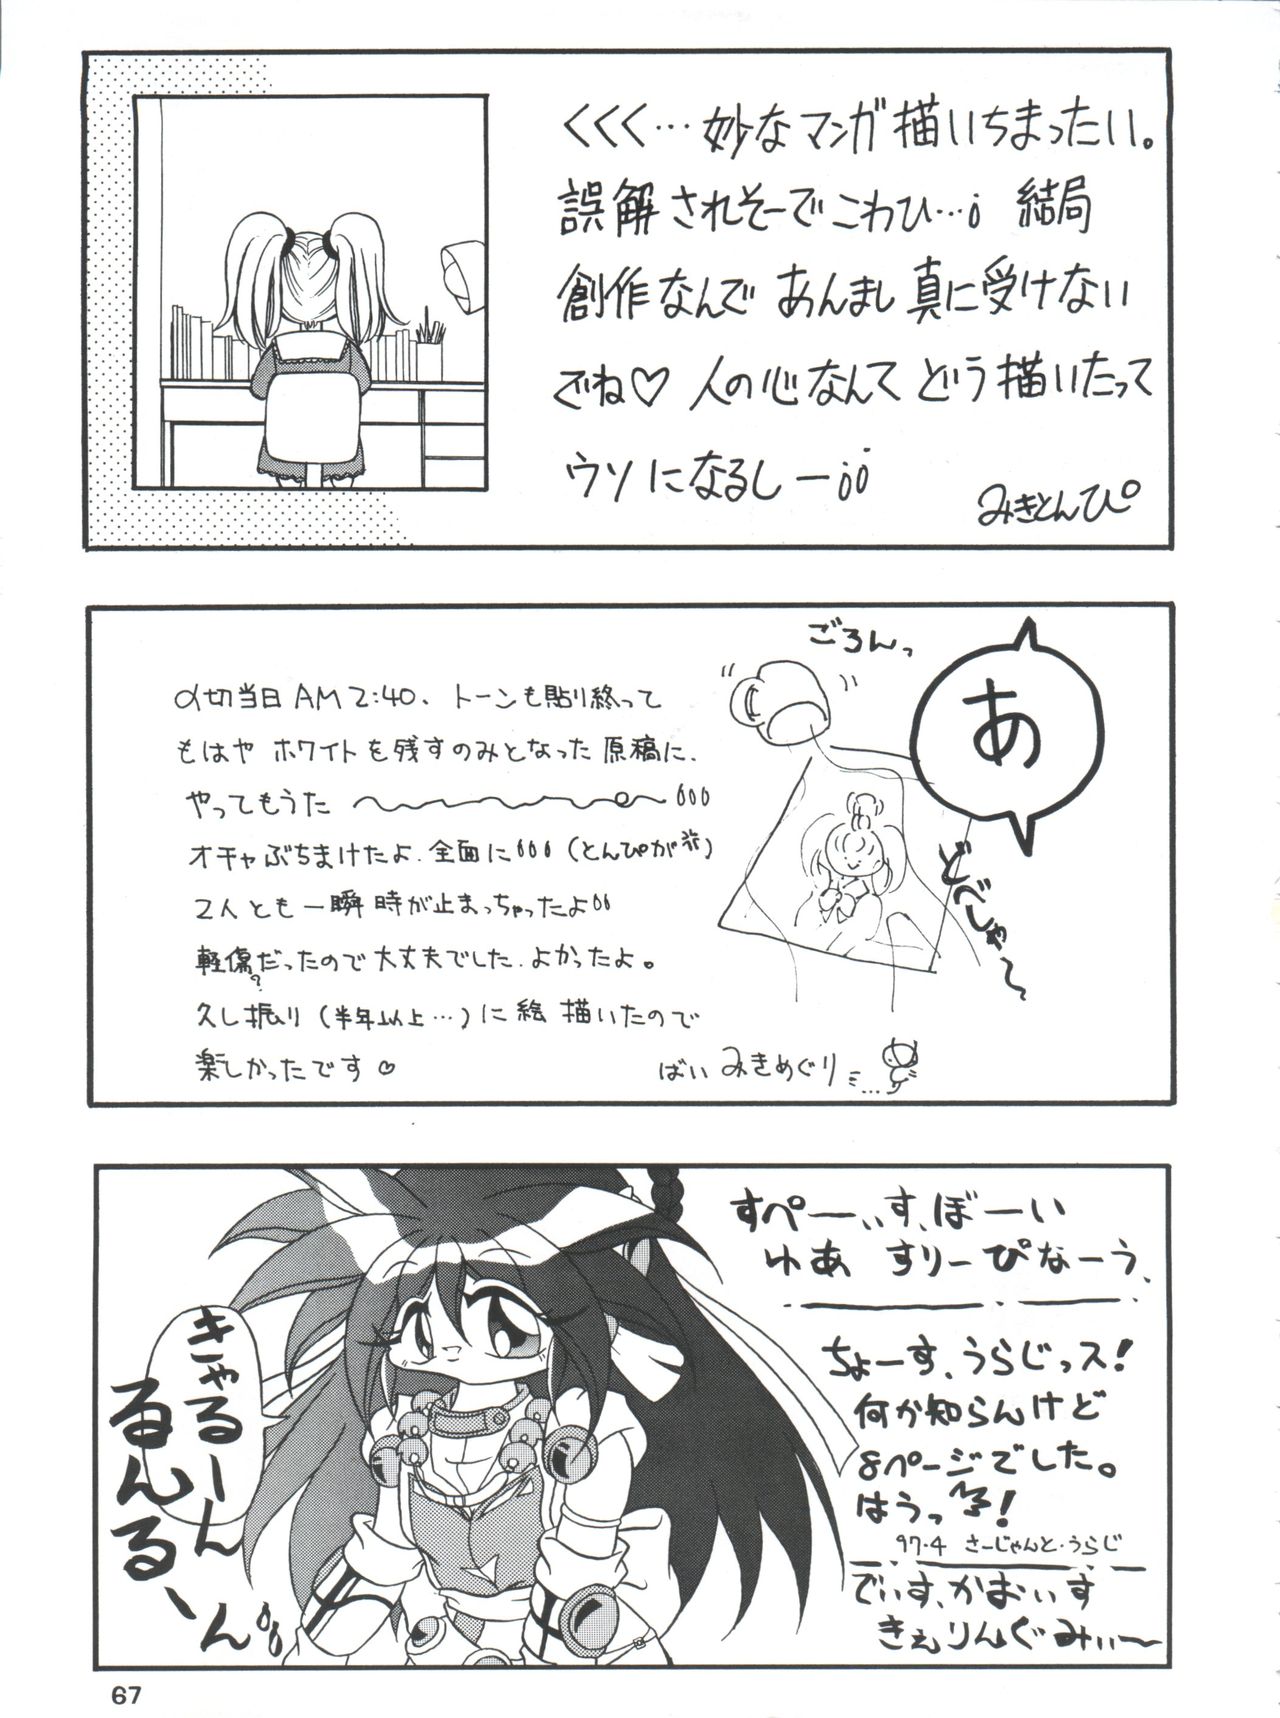 くくく…妙なマンガ描いちまったい。
誤解されそーでこわひ…¡ 結局
創作なんで あんまし真に受けない
でね♡ 人の心なんて どう描いたって
ウソになるしー¡¡
みきとんぴ
〆切当日AM2:40、トーンも貼り終って
もはや ホワイトを残すのみとなった原稿に、
やってもうた
オチャぶちまけたよ、全面に(とんぴが)
2人とも一瞬時が止まっちゃったよ
軽傷?だったので大丈夫でした、よかったよ。
久し振り(半年以上…)に絵 描いたので
楽しかったです♡
ばい みきめぐり
ごろんっ
あ
どべしゃ〜
すぺーいす、ぼーい
ゆあ すりーぴなーう、
ちょーす、うらじっス!
何か知らんけど
8ページでした。
はうっ!
97・4 さーじゃんと・うらじ
でぃす、かおぃす
きぇりんぐみぃ〜
きゃるーん
るんる、ん
67